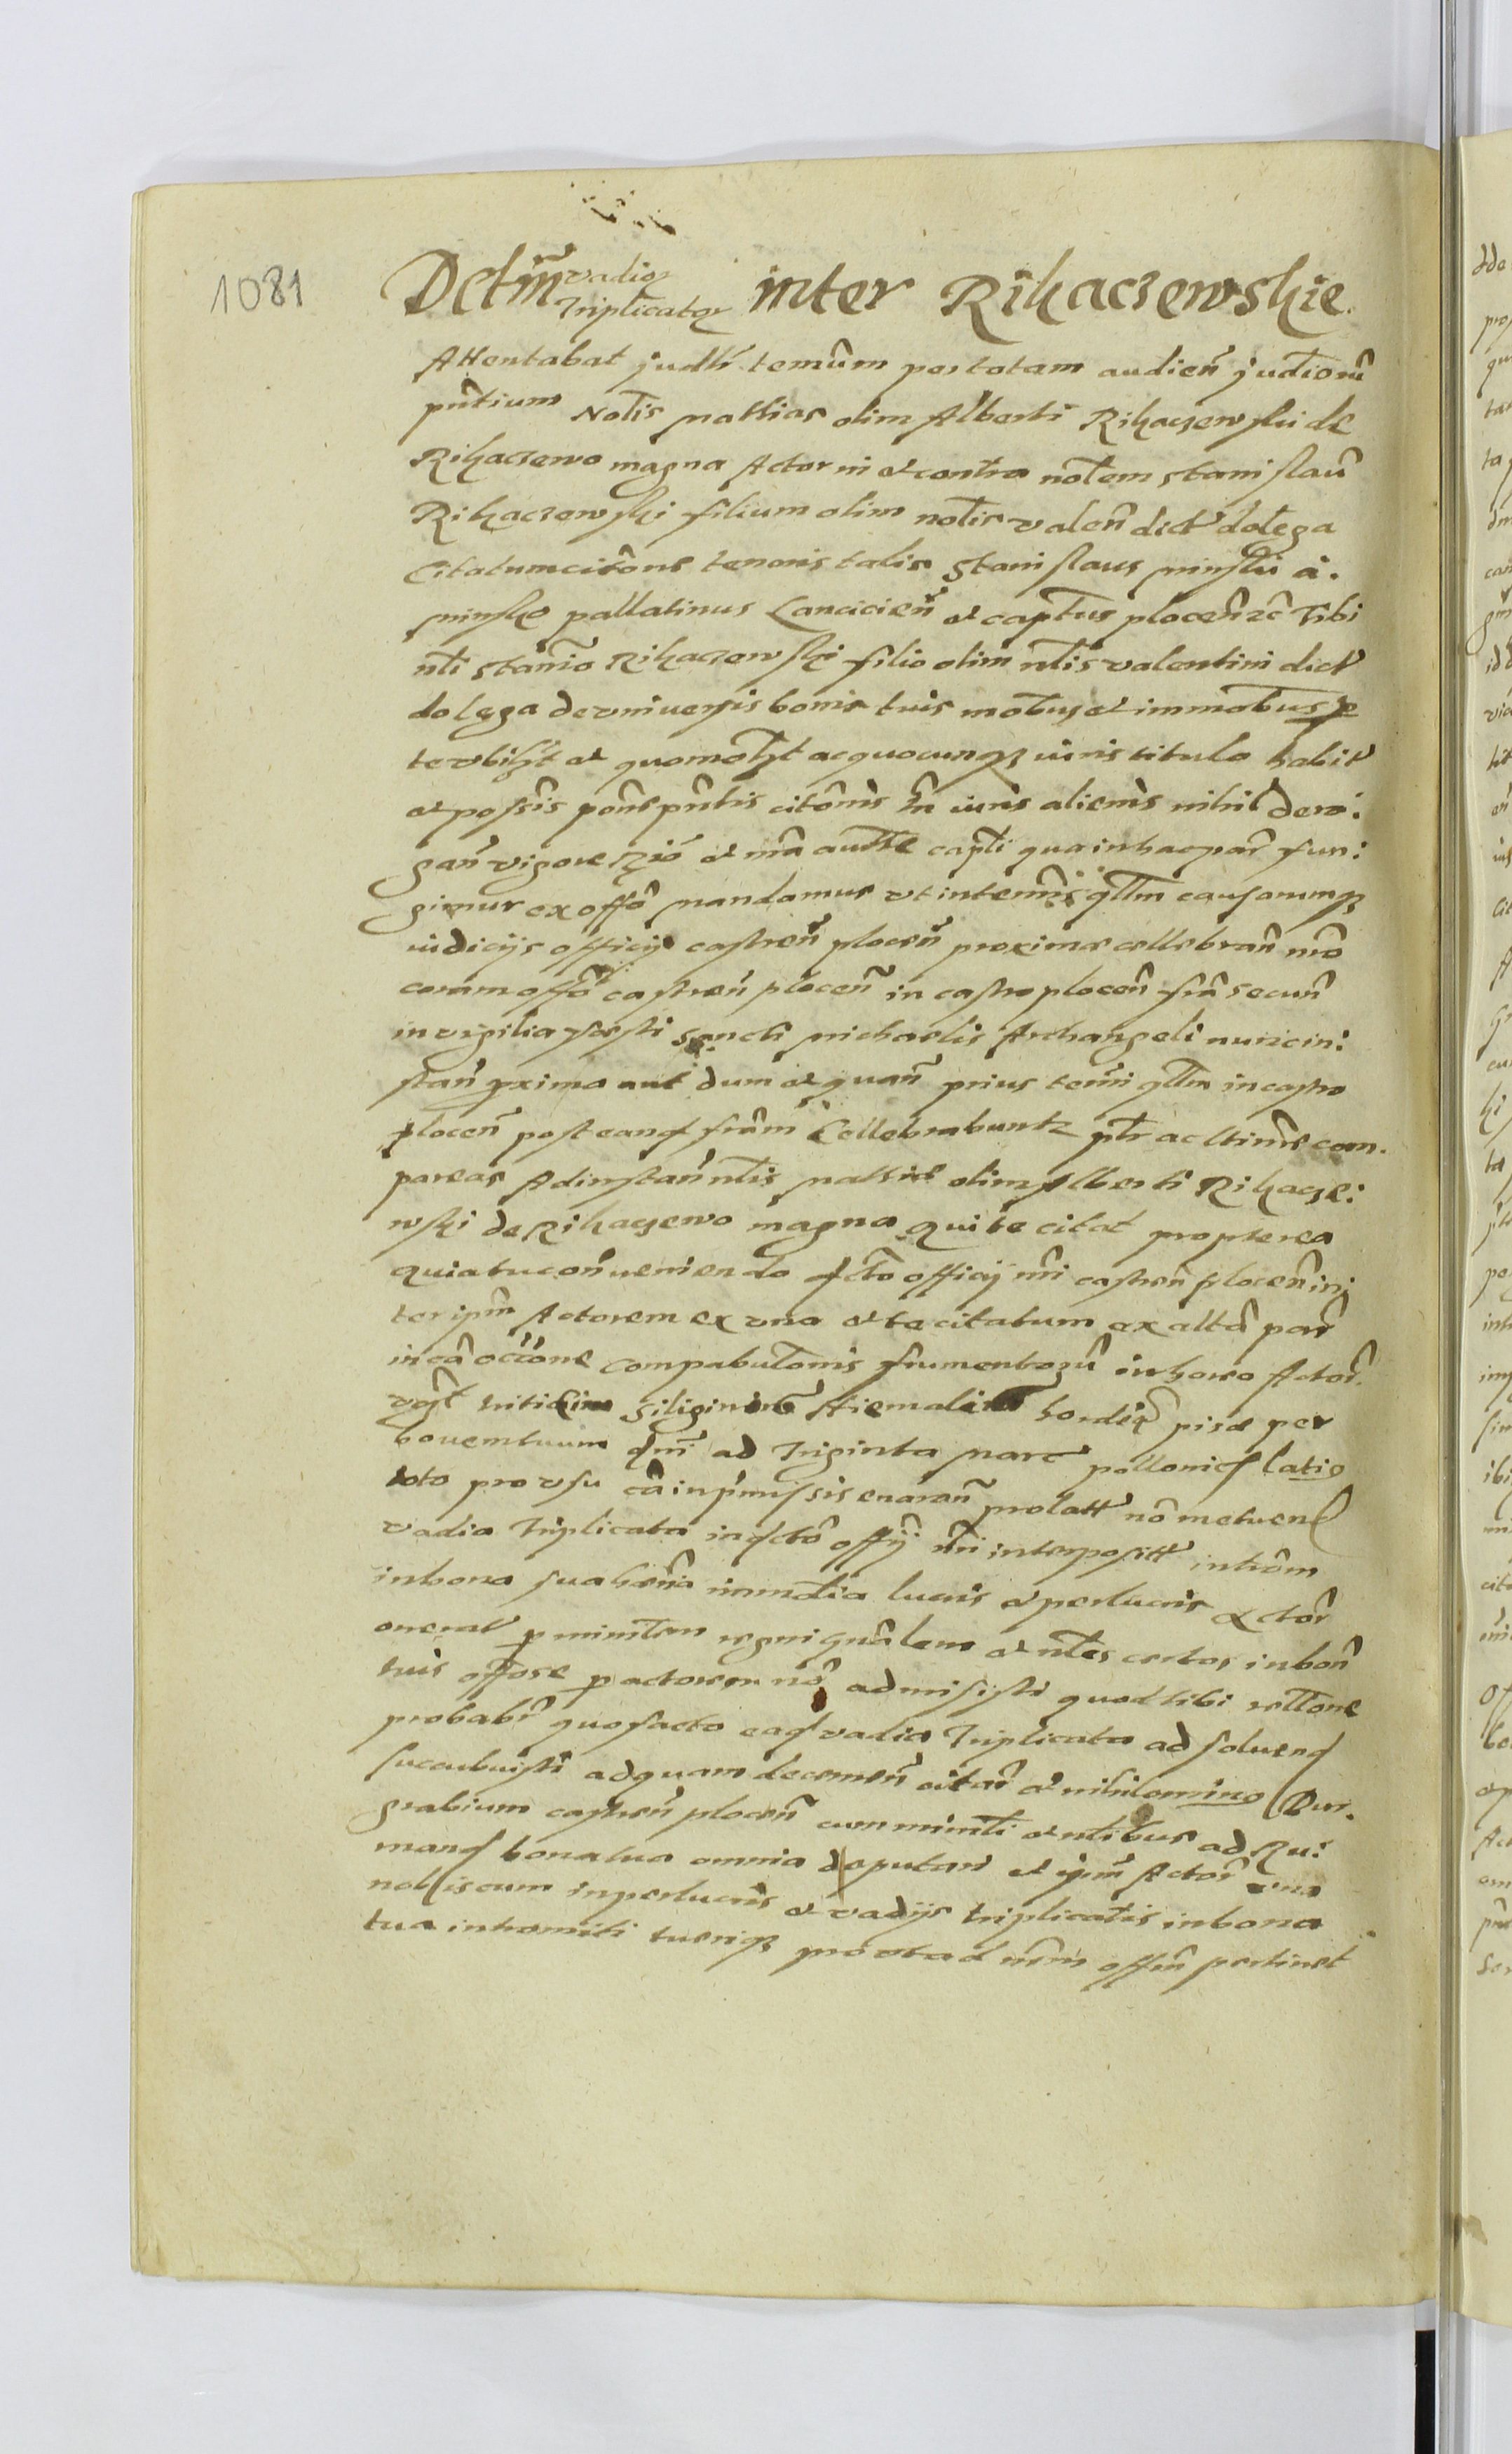 1081
Dctm̃ vadior
Triplicator inter Rikaczewskie.
Attentabat judlr̃ termĩm per totam audieñ judiorũ
pñtium Nobis Mathias olim Alberti Rikaczewski de
Rikaczewo magna Actor in et contra nobem Stanislaũ
Rikaczewski filium olim nobis valeñ dict dolega
Citatum citõne tenoris talis Stanislaus Minski a.
Minsko pallatinus Lancicieñ et captus ploceñ zc Tibi
nbi Stanio Rikaczewski filio olim nbis valentini dict
dolega de vniuersis bonis tuis mobus et immobus p
te vbilzt et quomolzt ac quocunqz iuris titulo habit
et possis põne pñtis citõnis iuris alienis nihil dero:
gañ vigore et mã autte capti qua in hac par fun:
gimur ex offõ mandamus vt in termis qllm causarumqz
iudicijs officij castreñ ploceñ proxime cellebrañ
coram offõ castreñ ploceñ in castro ploceñ frã secuñ
in vigilia festi sancti Michaelis Archangeli nunc in:
stañ pxima aut dum et quañ prius termi qllm in castro
ploceñ post eand frãm Cellebrabuntz ptr ac ltime com.
pareas Ad instañ nbis Mathie olim Alberti Rikacze:
wski de Rikaczewo magna qui te citat propterea
quia tu conueniendo dcto officij nri castreñ ploceñ in
ter ipm Actorem ex vna et te citatum ex altã par
in cã occõne compabulonis frumentorũ in horreo Actor.
vgt triticim siligin hiemalis hordei pisæ per
bouem tuum ad Triginta Marc pollonic latis
toto pro vsu cã in p̃missis enarrañ prolatt nõ metuend
vadia Triplicata in dcto offij nri interpositt introm
in bona sua immedia lucris et perlucris Actor
onerat p minirem regni gnãlem et nbes certos in bon
tuis offose p actorem nõ admisisti quod tibi rellone
probabr quo facto ead vadia Triplicata ad soluend
succubuisti ad quam decerneñ citar et nihilomino Bur.
grabium castreñ ploceñ cum minirli et nbibus ad Ru:
mand bona tua omnia deputari et ipm Actor vna
nobiscum in perlucris et vadijs triplicatis in bona
tua intromitti tueriqz prout ad nrm offm pertinet